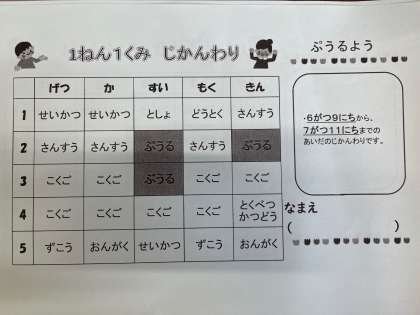 1ねん1くみ じかんわり
ぷうるよう
げつ か すい もく きん
1 せいかつ せいかつ としょ どうとく さんすう
2 さんすう さんすう ぷうる さんすう ぷうる
3 こくご こくご ぷうる こくご こくご
4 こくご こくご こくご こくご とくべつ
かつどう
5 ずこう おんがく せいかつ ずこう おんがく
・6がつ9にちから、
7がつ11にちまでの
あいだのじかんわりです。
なまえ
( )